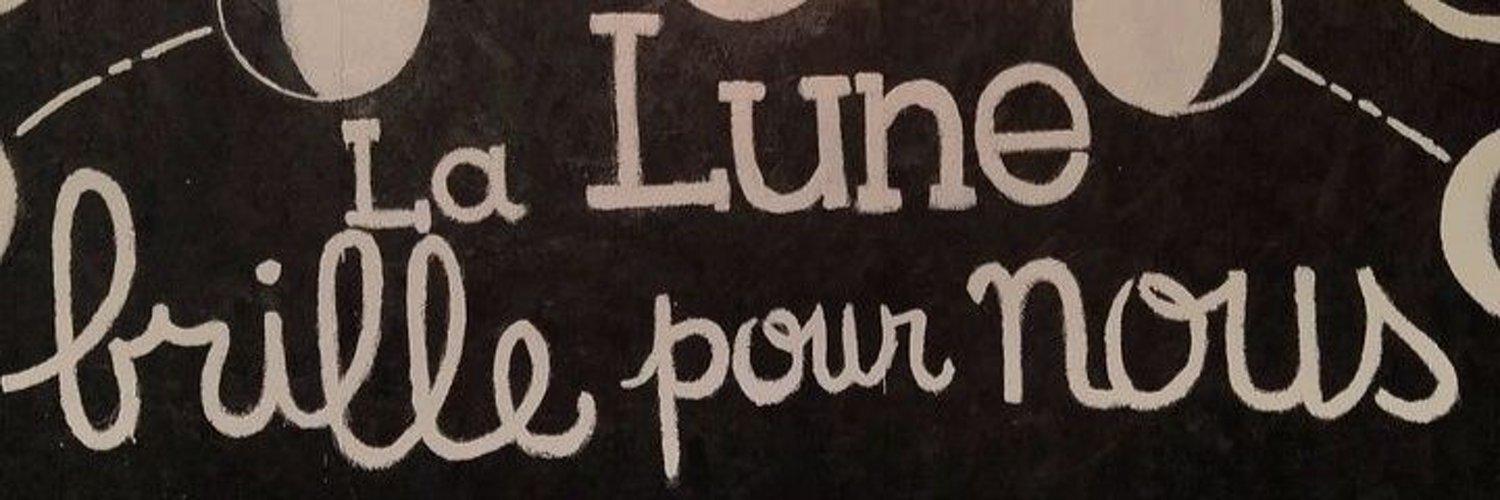 La Lune
brille pour nous